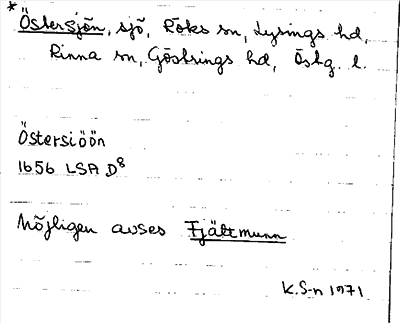 *Östersjön, sjö, Röks sn, Lysings hd,
Rinna sn, Göstrings hd, Östg. l.
Östersiöön
1656 LSA D8
Möjligen avses Fjättmunn
K.S-n 1971